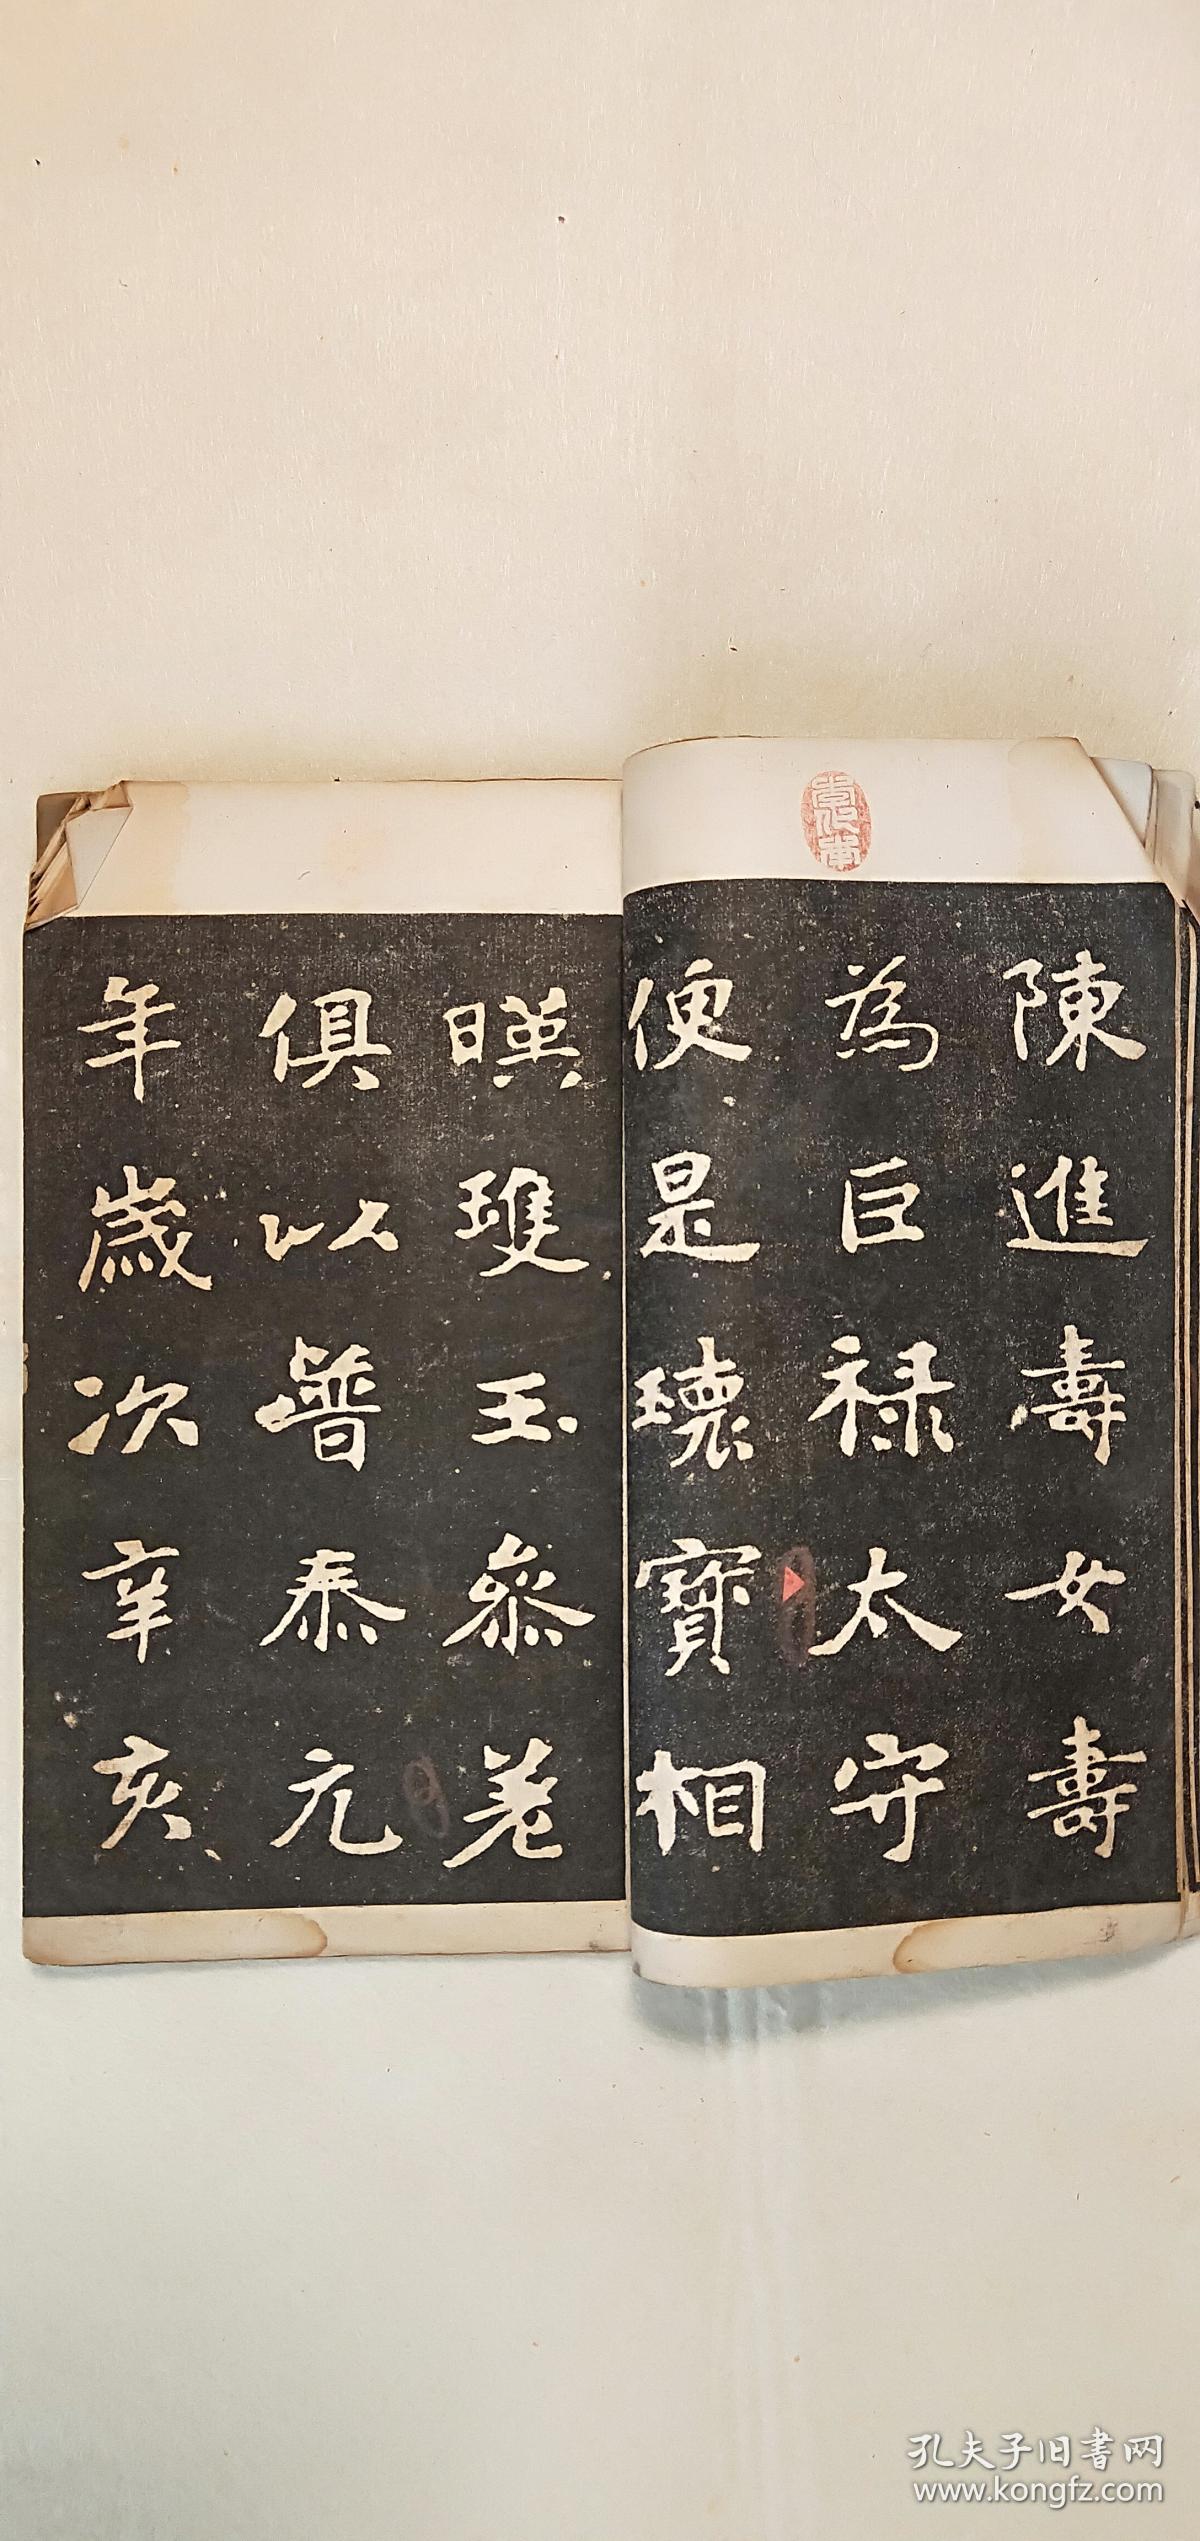 陳進壽女壽
為巨祿太守
便是瓌寶相
暎雙玉叅差
俱以普泰元
年歲次辛亥
孔夫子旧書网
www.kongfz.com